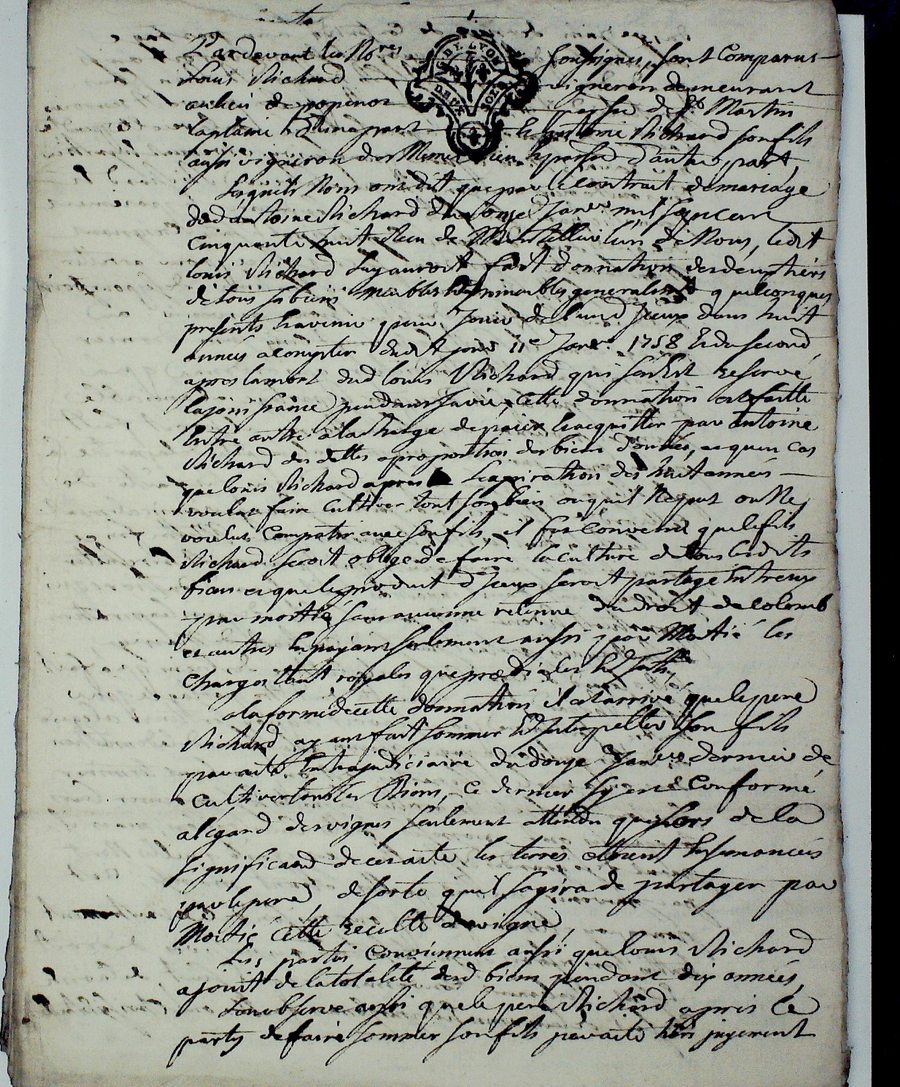 Pardevant les No.res soussignés, sont Comparus
Louis Richard vigneron demeurant
au lieu de popenot parroisse de St Martin
laplaine d'une part et antoine Richard son fils
aussi vigneron dem.t au meme lieu et parroisse d'autre part
Lesquels Nous ont dit que par le contrait de mariage
dud antoine Richard du onze Janv.er mil sept cent
cinquante huit Recu de l'un de Nous, ledit
louis Richard luy auroit fait donnation des deux tiers
de tous ses biens meubles et immeubles generalement quelconques
presents et avenir pour Jouir de l'un d'iceux dans huit
années a compter dudit jour 11e Janv.r 1758 Et du second
apres la mort dud louis Richard qui s'en Est reservé
la jouissance pendant sa vie, cette donnation est faitte
Entre autre a la charge de paier et acquitter par antoine
Richard des dettes a proportion des biens donnés, et qu'en cas
que louis Richard apres l'expiration des huit années
voulut faire cultiver tout ses biens ou qu'il Ne put ou Ne
voulut compatir avec son fils, il fut convenu que le fils
Richard seroit obligé de faire la culture de tous lesdits
biens et que le produit d'iceux seroit partagé Entreux
par moitié sans aucunne retenue du droit de colonb
et autres En payant seulement aussi par Moitié les
charges tant royales que prediales
a la forme de cette donnation il est arrivé que le pere
Richard ayant fait sommer Et Interpeller son fils
par acte Extrajudiciaire du douze Janv.er dernier de
cultiver tous les Biens, ce dernier s'y est conformé
a l'egard des vignes seulement attendu que lors de la
signification de cet acte les terres etoient Ensemancées
par le pere, de sorte qu'il s'agira de partager par
Moitié cette recolte de vigne,
Les parties conviennent aussi, que louis Richard
a jouit de la totalité desd biens pendant dix années,
L'on observe aussi que le pere Richard apres le
party de faire sommer son fils par acte